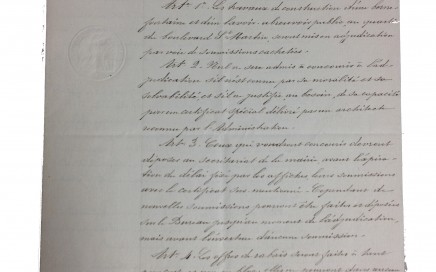 Art 1er Les travaux de construction d'une borne
fontaine et d'un lavoir abreuvoir public au quart
du boulevard St Martin seront mis en adjudication
par voie de soumissions cachetées.
Art. 2. Nul n'est admis à concourir à l'ad-
judication s'il n'est connu par sa moralité et sa
solvabilité, et s'il ne justifie au besoin, de sa capacité
par un certificat spécial délivré par un architecte
reconnu par l'Administration.
Art. 3. Ceux qui voudront concourir devront
déposer au secrétariat de la mairie avant l'expira-
tion du délai fixé par les affiches leurs soumissions
avec le certificat sus mentionné. Cependant de
nouvelles soumissions pourront être faites et déposées
sur le Bureau jusqu'au moment de l'adjudication,
mais avant l'ouverture d'aucune soumission.
Art. 4. Les offres de rabais seront faites à tant